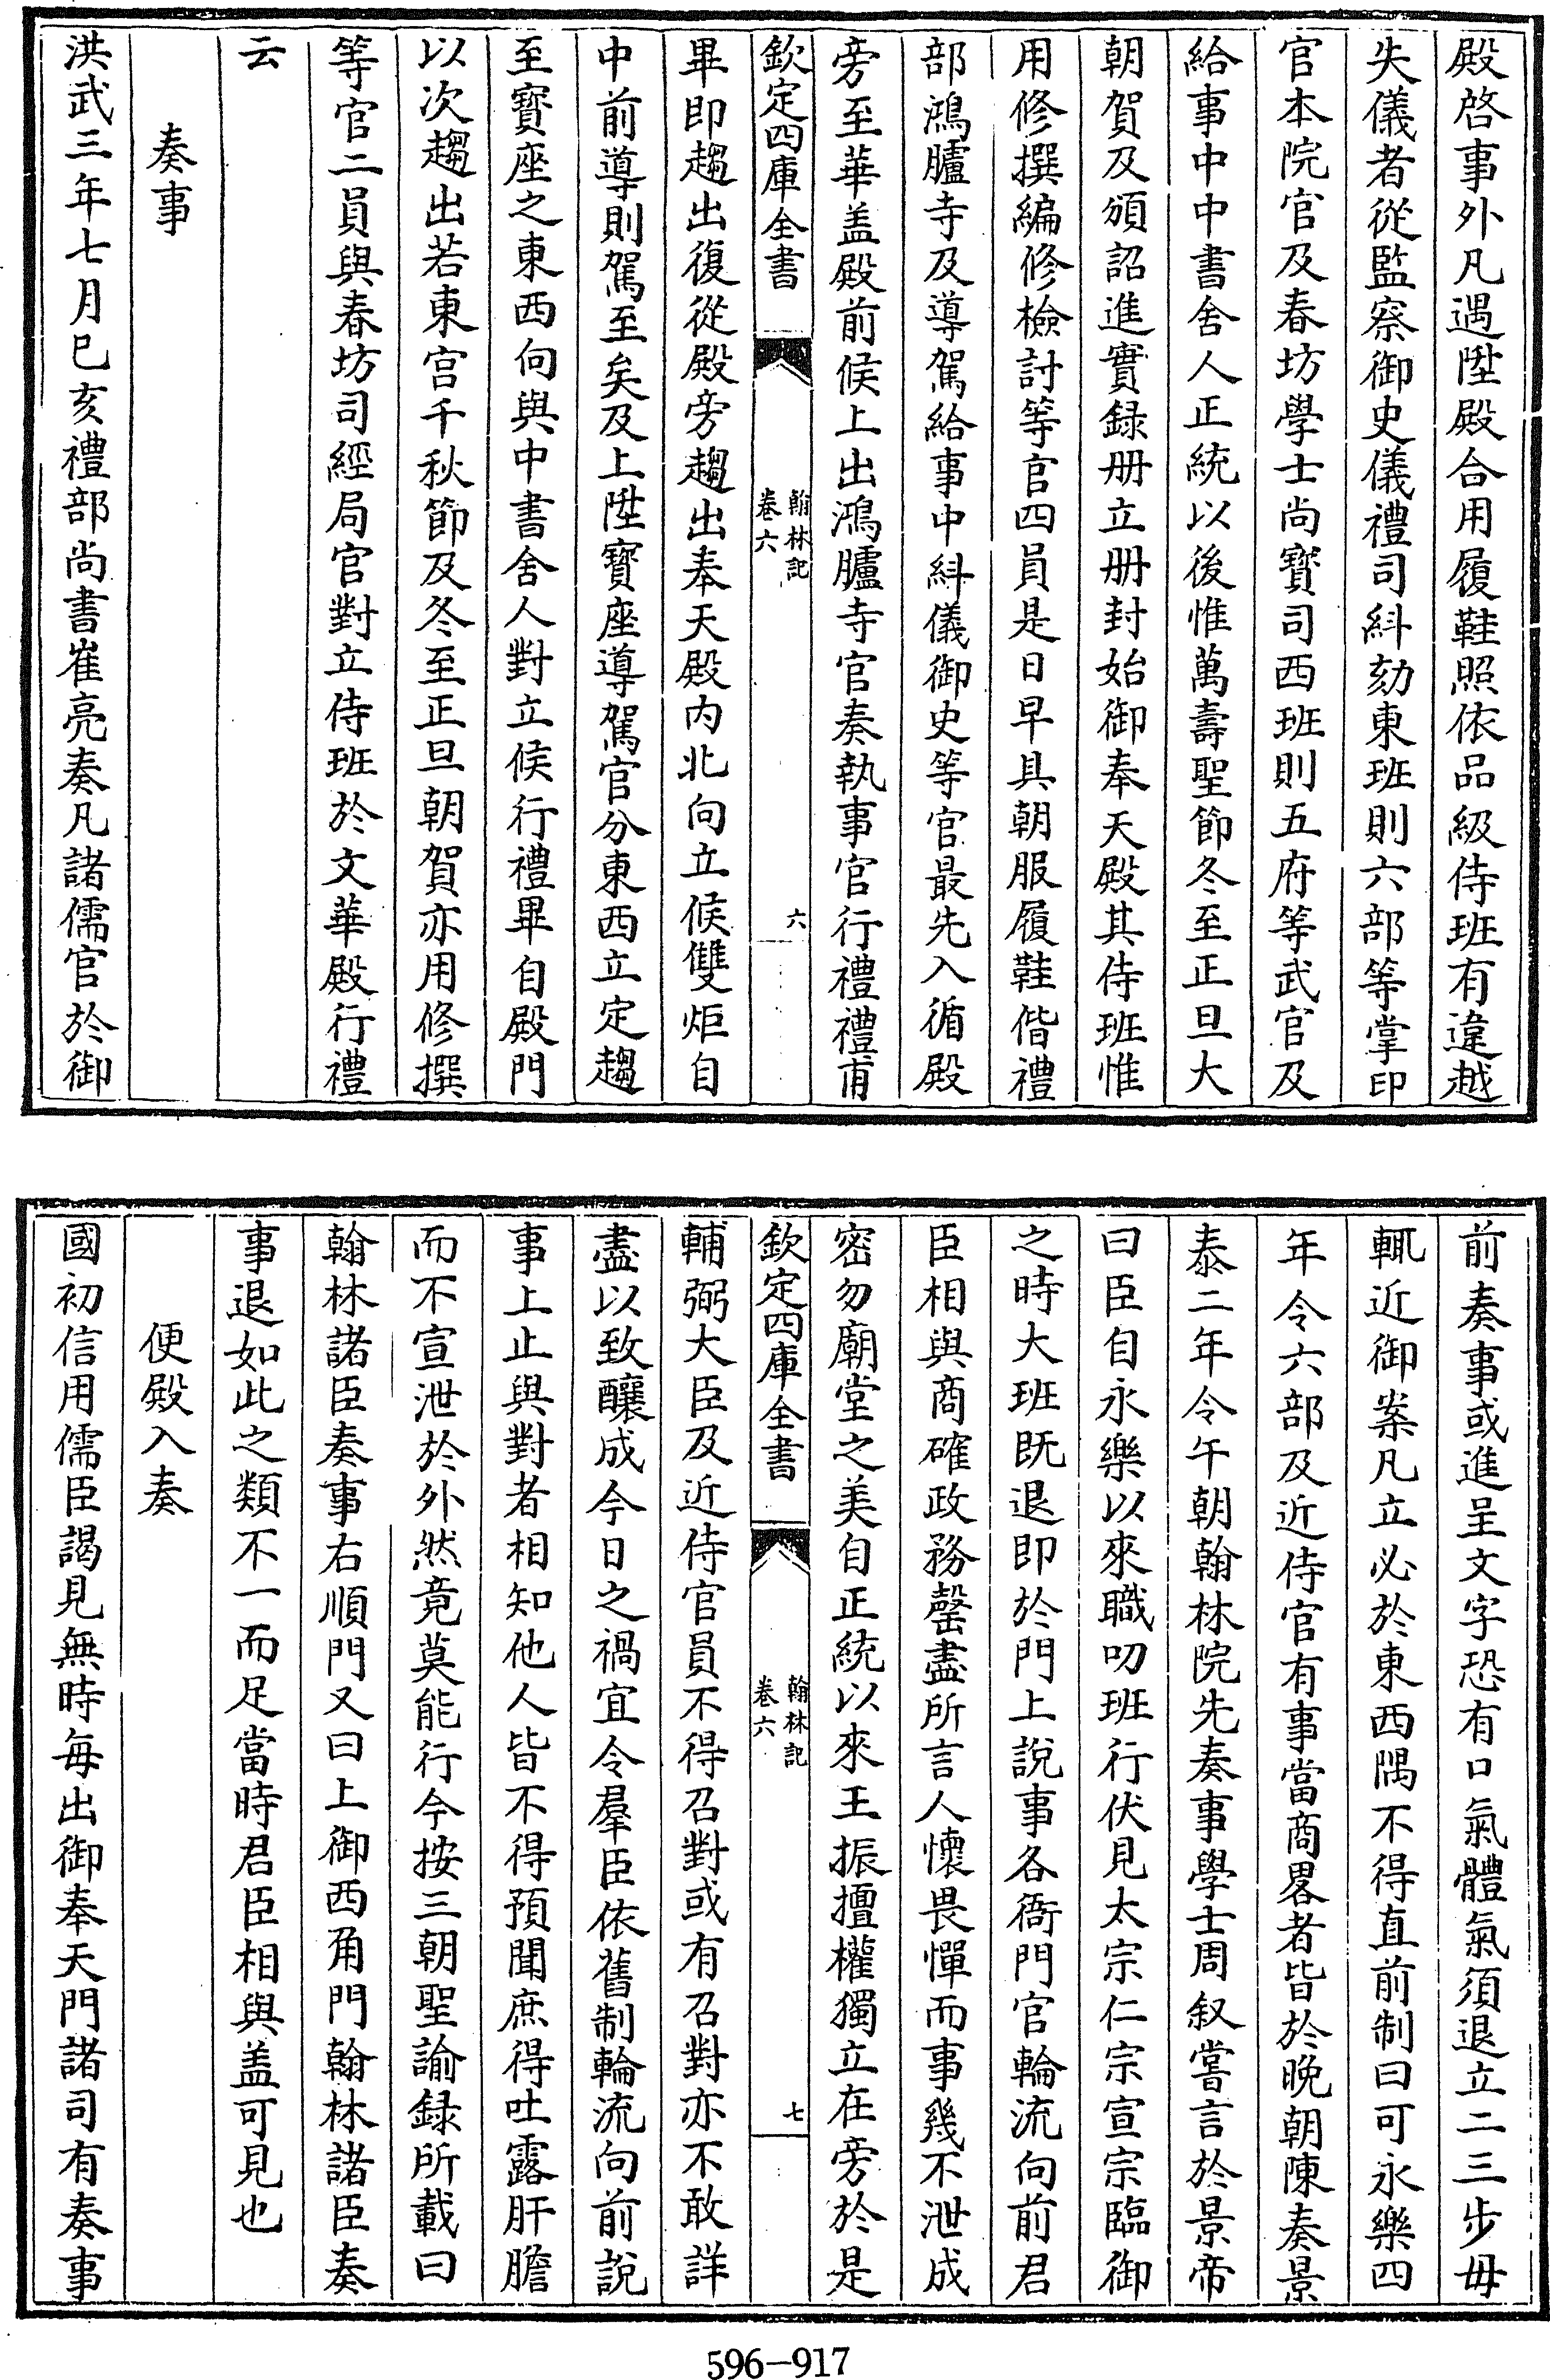 殿啓事外凡遇陞殿合用履鞋照依品級侍班有違越
失儀者從監察御史儀禮司糾劾東班則六部等掌印
官本院官及春坊學士尚寳司西班則五府等武官及
給事中中書舍人正統以後惟萬壽聖節冬至正旦大
朝賀及頒詔進實録册立册封始御奉天殿其侍班惟
用修撰編修檢討等官四員是日早具朝服履鞋偕禮
部鴻臚寺及導駕給事中糾儀御史等官最先入循殿
旁至華盖殿前候上出鴻臚寺官奏執事官行禮禮甫
欽定四庫全書
翰林記
卷六
六
畢即趨出復從殿旁趨出奉天殿内北向立候雙炬自
中前導則駕至矣及上陞寳座導駕官分東西立定趨
至寳座之東西向與中書舍人對立候行禮畢自殿門
以次趨出若東宫千秋節及冬至正旦朝賀亦用修撰
等官二員與春坊司經局官對立侍班於文華殿行禮
云
奏事
洪武三年七月己亥禮部尚書崔亮奏凡諸儒官於御
前奏事或進呈文字恐有口氣體氣須退立二三步毋
輒近御案凡立必於東西隅不得直前制曰可永樂四
年令六部及近侍官有事當商畧者皆於晚朝陳奏景
泰二年令午朝翰林院先奏事學士周叙嘗言於景帝
曰臣自永樂以來職叨班行伏見太宗仁宗宣宗臨御
之時大班既退即於門上說事各衙門官輪流向前君
臣相與商確政務罄盡所言人懷畏憚而事幾不泄成
密勿廟堂之美自正統以來王振擅權獨立在旁於是
欽定四庫全書
翰林記
卷六
七
輔弼大臣及近侍官員不得召對或有召對亦不敢詳
盡以致釀成今日之禍宜令羣臣依舊制輪流向前說
事上止與對者相知他人皆不得預聞庶得吐露肝膽
而不宣泄於外然竟莫能行今按三朝聖諭録所載曰
翰林諸臣奏事右順門又曰上御西角門翰林諸臣奏
事退如此之類不一而足當時君臣相與盖可見也
便殿入奏
國初信用儒臣謁見無時每出御奉天門諸司有奏事
596-917